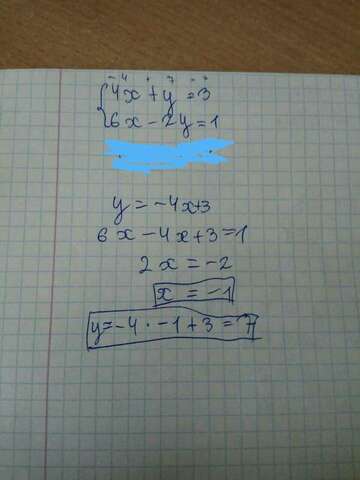 4x + y = 3
6x - 2y = 1
y = -4x+3
6x - 4x + 3 = 1
2x = -2
x = -1
y = -4 · -1 + 3 = 7